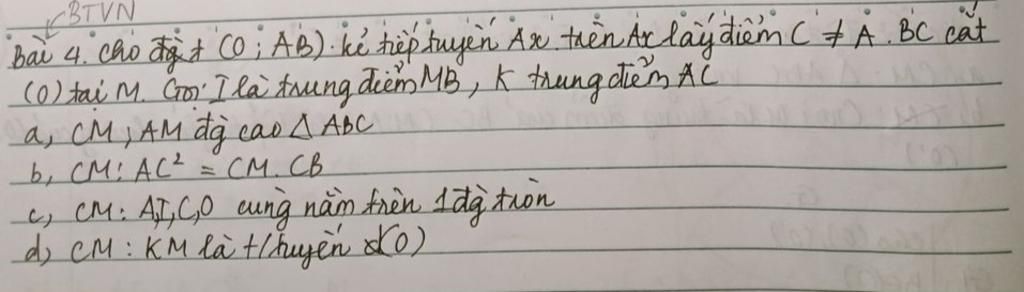 BTVN
Bài 4. Cho đg t (O; AB). kẻ tiếp tuyến Ax. trên Ax lấy điểm C ≠ A. BC cắt
(O) tại M. Gọi I là trung điểm MB, K trung điểm AC
a, CM: AM đg cao Δ ABC
b, CM: AC² = CM. CB
c, CM: A,I,C,O cùng nằm trên 1 đg tròn
d, CM: KM là t/tuyến (O)